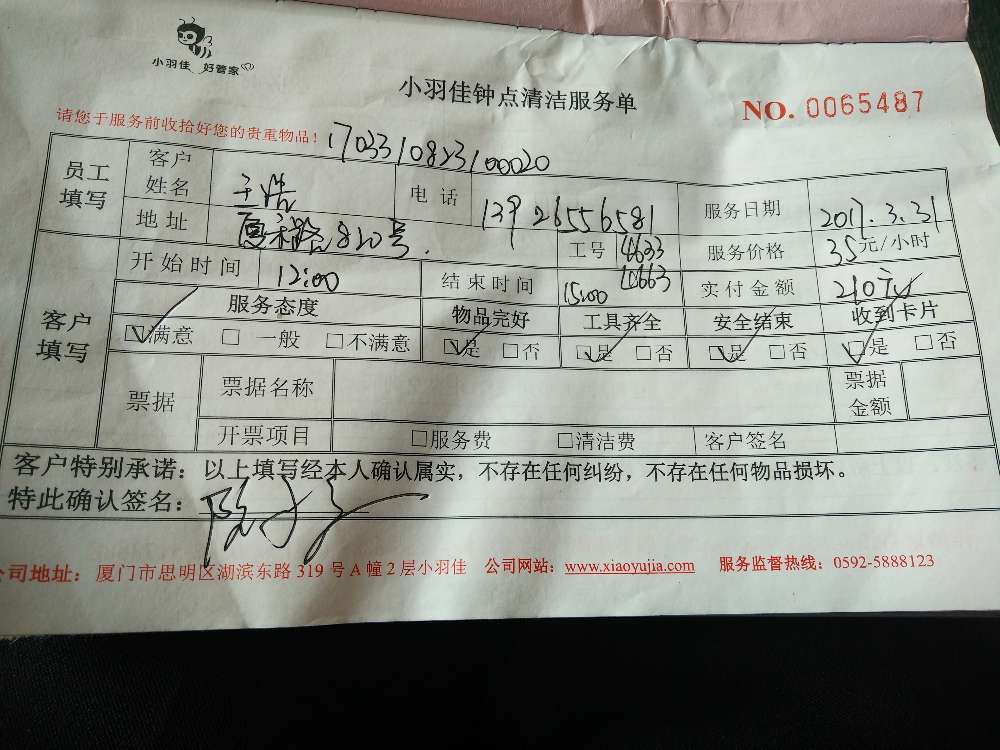 小羽佳 好管家
小羽佳钟点清洁服务单
NO. 0065487
请您于服务前收拾好您的贵重物品！
1703310823100020
员工填写 客户姓名 电话 13926556581 服务日期 2017.3.31
地址 820号. 工号 4633 10663 服务价格 35元/小时
客户填写 开始时间 12:00 结束时间 15:00 实付金额 210元
服务态度 物品完好 工具齐全 安全结束 收到卡片
☑满意 □一般 □不满意 ☑是 □否 ☑是 □否 ☑是 □否 ☑是 □否
票据 票据名称 票据金额
开票项目 □服务费 □清洁费 客户签名
客户特别承诺：以上填写经本人确认属实，不存在任何纠纷，不存在任何物品损坏。
特此确认签名：
公司地址：厦门市思明区湖滨东路319号A幢2层小羽佳 公司网站：www.xiaoyujia.com 服务监督热线：0592-5888123